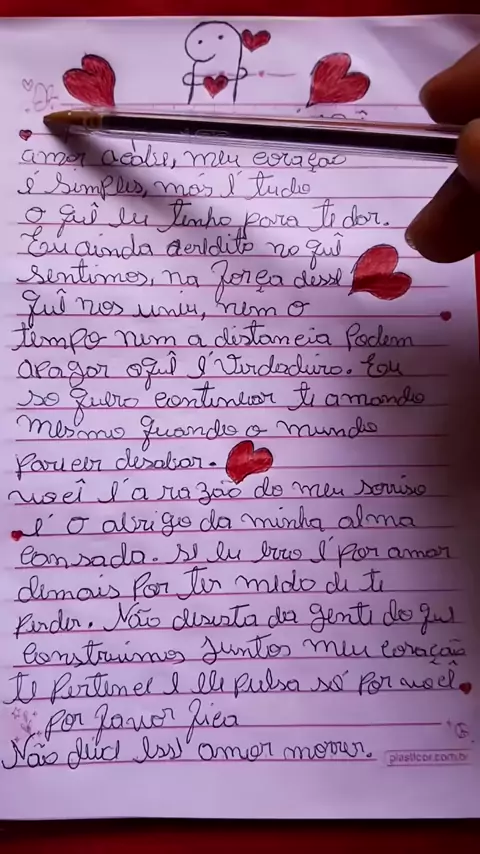 amor acabe, meu coração
é simples, mas é tudo
o quê eu tenho para te dar.
Eu ainda acredito no quê
sentimos, na força desse
quê nos uniu, nem o
tempo nem a distancia podem
apagar oquê é Verdadeiro. Eu
só quero continuar te amando
mesmo quando o mundo
parecer desabar.
você é a razão do meu sorriso
é o abrigo da minha alma
cansada. se eu erro é por amar
demais por ter medo de te
perder. Não desista da gente do que
construimos juntos meu coração
te pertence e ele pulsa só por você
por favor fica
Não deixe esse amor morrer.
plasticor.com.br